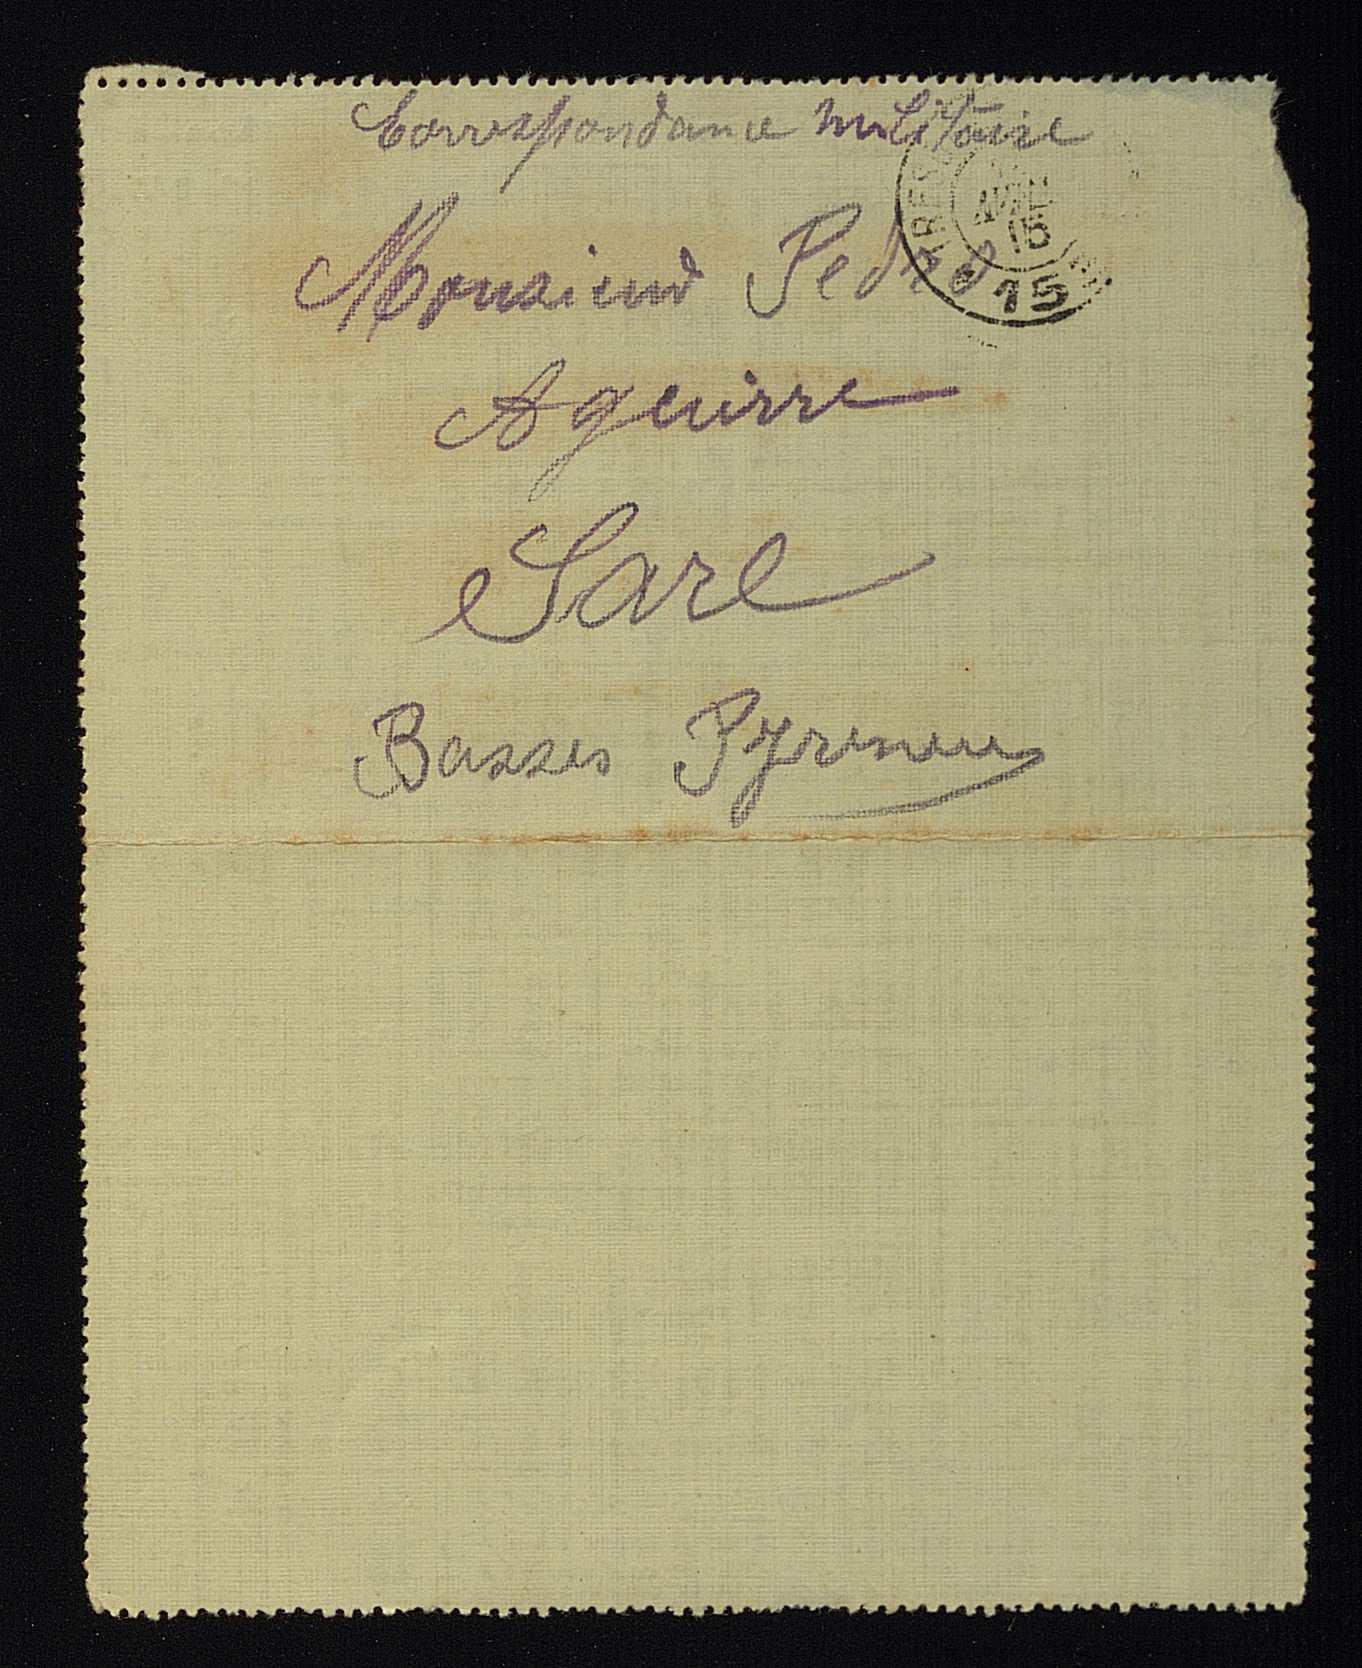 Correspondance militaire
Monsieur Pedro
Aguirre
Sare
Basses Pyrenees
15
15